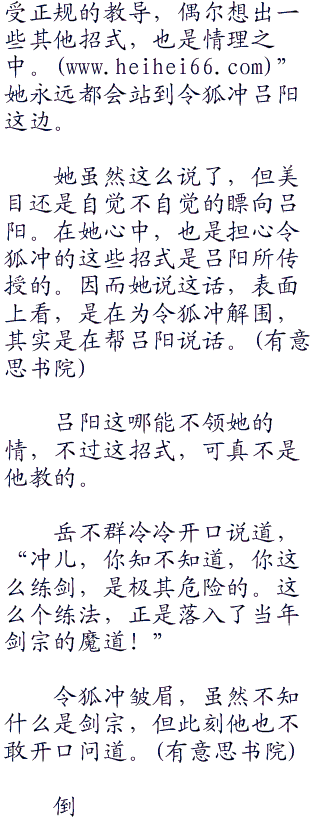 受正规的教导，偶尔想出一
些其他招式，也是情理之
中。(www.heihei66.com)”
她永远都会站到令狐冲吕阳
这边。
她虽然这么说了，但美
目还是自觉不自觉的瞟向吕
阳。在她心中，也是担心令
狐冲的这些招式是吕阳所传
授的。因而她说这话，表面
上看，是在为令狐冲解围，
其实是在帮吕阳说话。(有意
思书院)
吕阳这哪能不领她的
情，不过这招式，可真不是
他教的。
岳不群冷冷开口说道，
“冲儿，你知不知道，你这
么练剑，是极其危险的。这
么个练法，正是落入了当年
剑宗的魔道！”
令狐冲皱眉，虽然不知
什么是剑宗，但此刻他也不
敢开口问道。(有意思书院)
倒